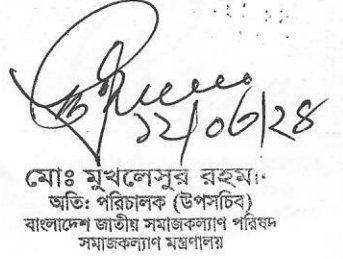 ১২/০৬/২৪
মোঃ মুখলেসুর রহমা.
অতি: পরিচালক (উপসচিব)
বাংলাদেশ জাতীয় সমাজকল্যাণ পরিষদ
সমাজকল্যাণ মন্ত্রণালয়